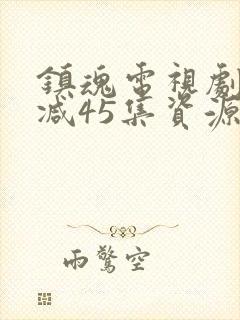 鎮魂電視劇
減45集資源
雨驚空